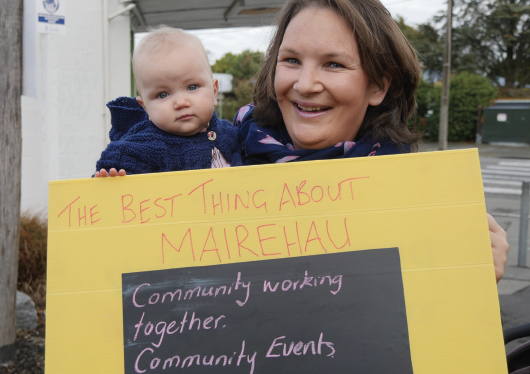 THE BEST THING ABOUT
MAIREHAU
Community working
together.
Community Events